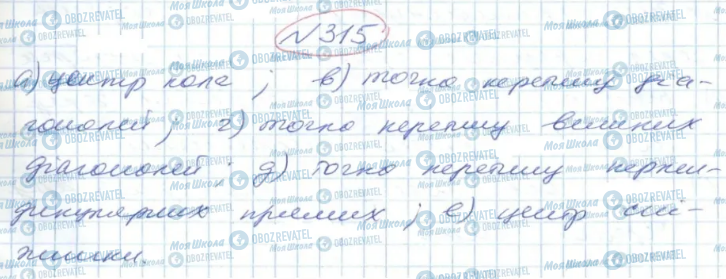 №315
а) центр кола ; в) точка перетину діа-
гоналей ; г) точка перетину великих
діагоналей ; д) точка перетину перпен-
дикулярних прямих ; е) центр сні-
жинки.